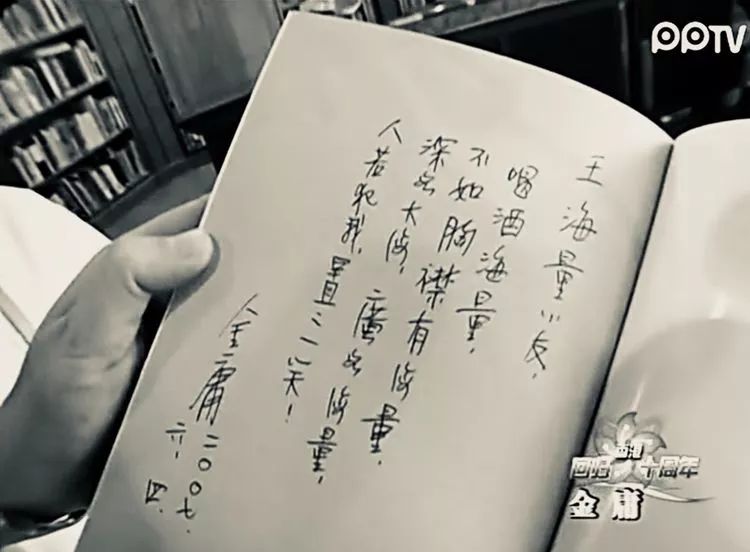 PPTV
王海量小友，
喝酒海量，
不如胸襟有海量，
深如大海，廣如海量，
人若犯我，置之一笑！
金庸 二〇〇七、
六、四、
香港
回归十周年
金庸